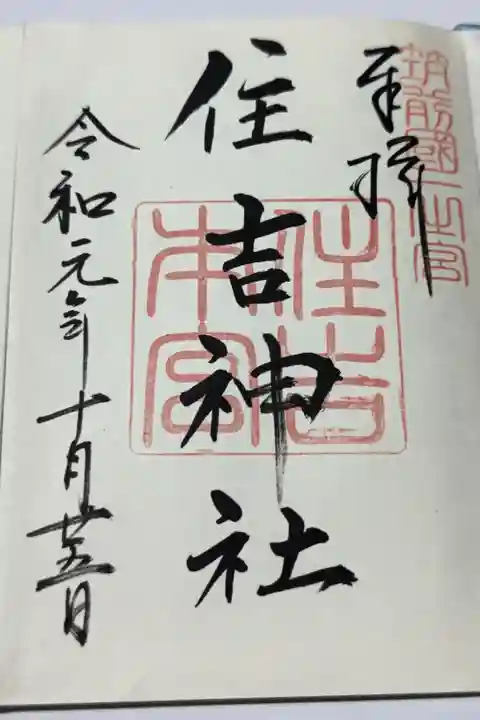 奉拝
筑前國一之宮
住吉神社
住吉本宮
令和元年十月廿五日